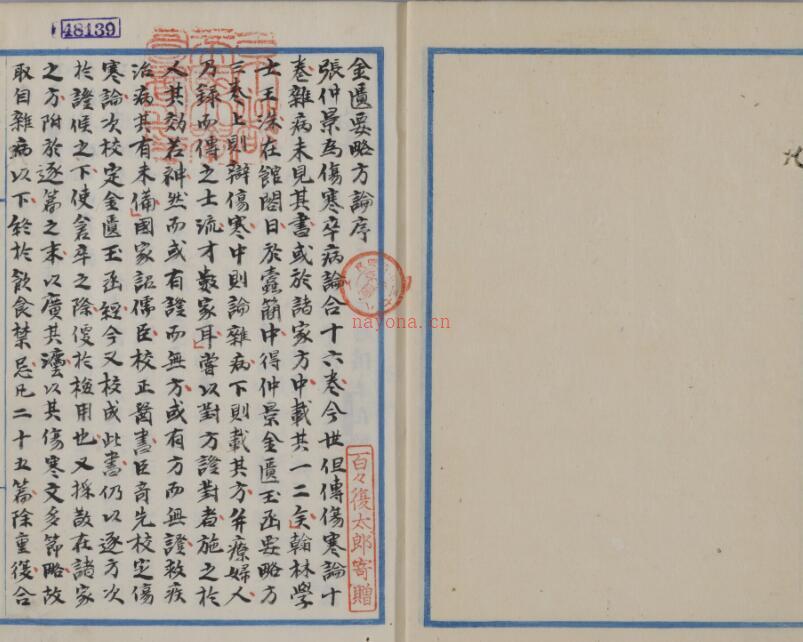 48139
金匱要略方論序
張仲景為傷寒卒病論合十六卷今世但傳傷寒論十
卷雜病未見其書或於諸家方中載其一二矣翰林學
士王洙在館閣日於蠹簡中得仲景金匱玉函要略方
三卷上則辯傷寒中則論雜病下則載其方并療婦人
乃錄而傳之士流才數家耳嘗以對方證對者施之於
人其効若神然而或有證而無方或有方而無證救疾
治病其有未備國家詔儒臣校正醫書臣奇先校定傷
寒論次校定金匱玉函經今又校成此書仍以逐方次
於證候之下使倉卒之際便於檢用也又採散在諸家
之方附於逐篇之末以廣其法以其傷寒文多節略故
取自雜病以下終於飲食禁忌凡二十五篇除重復合
百々復太郎寄贈
nayona.cn